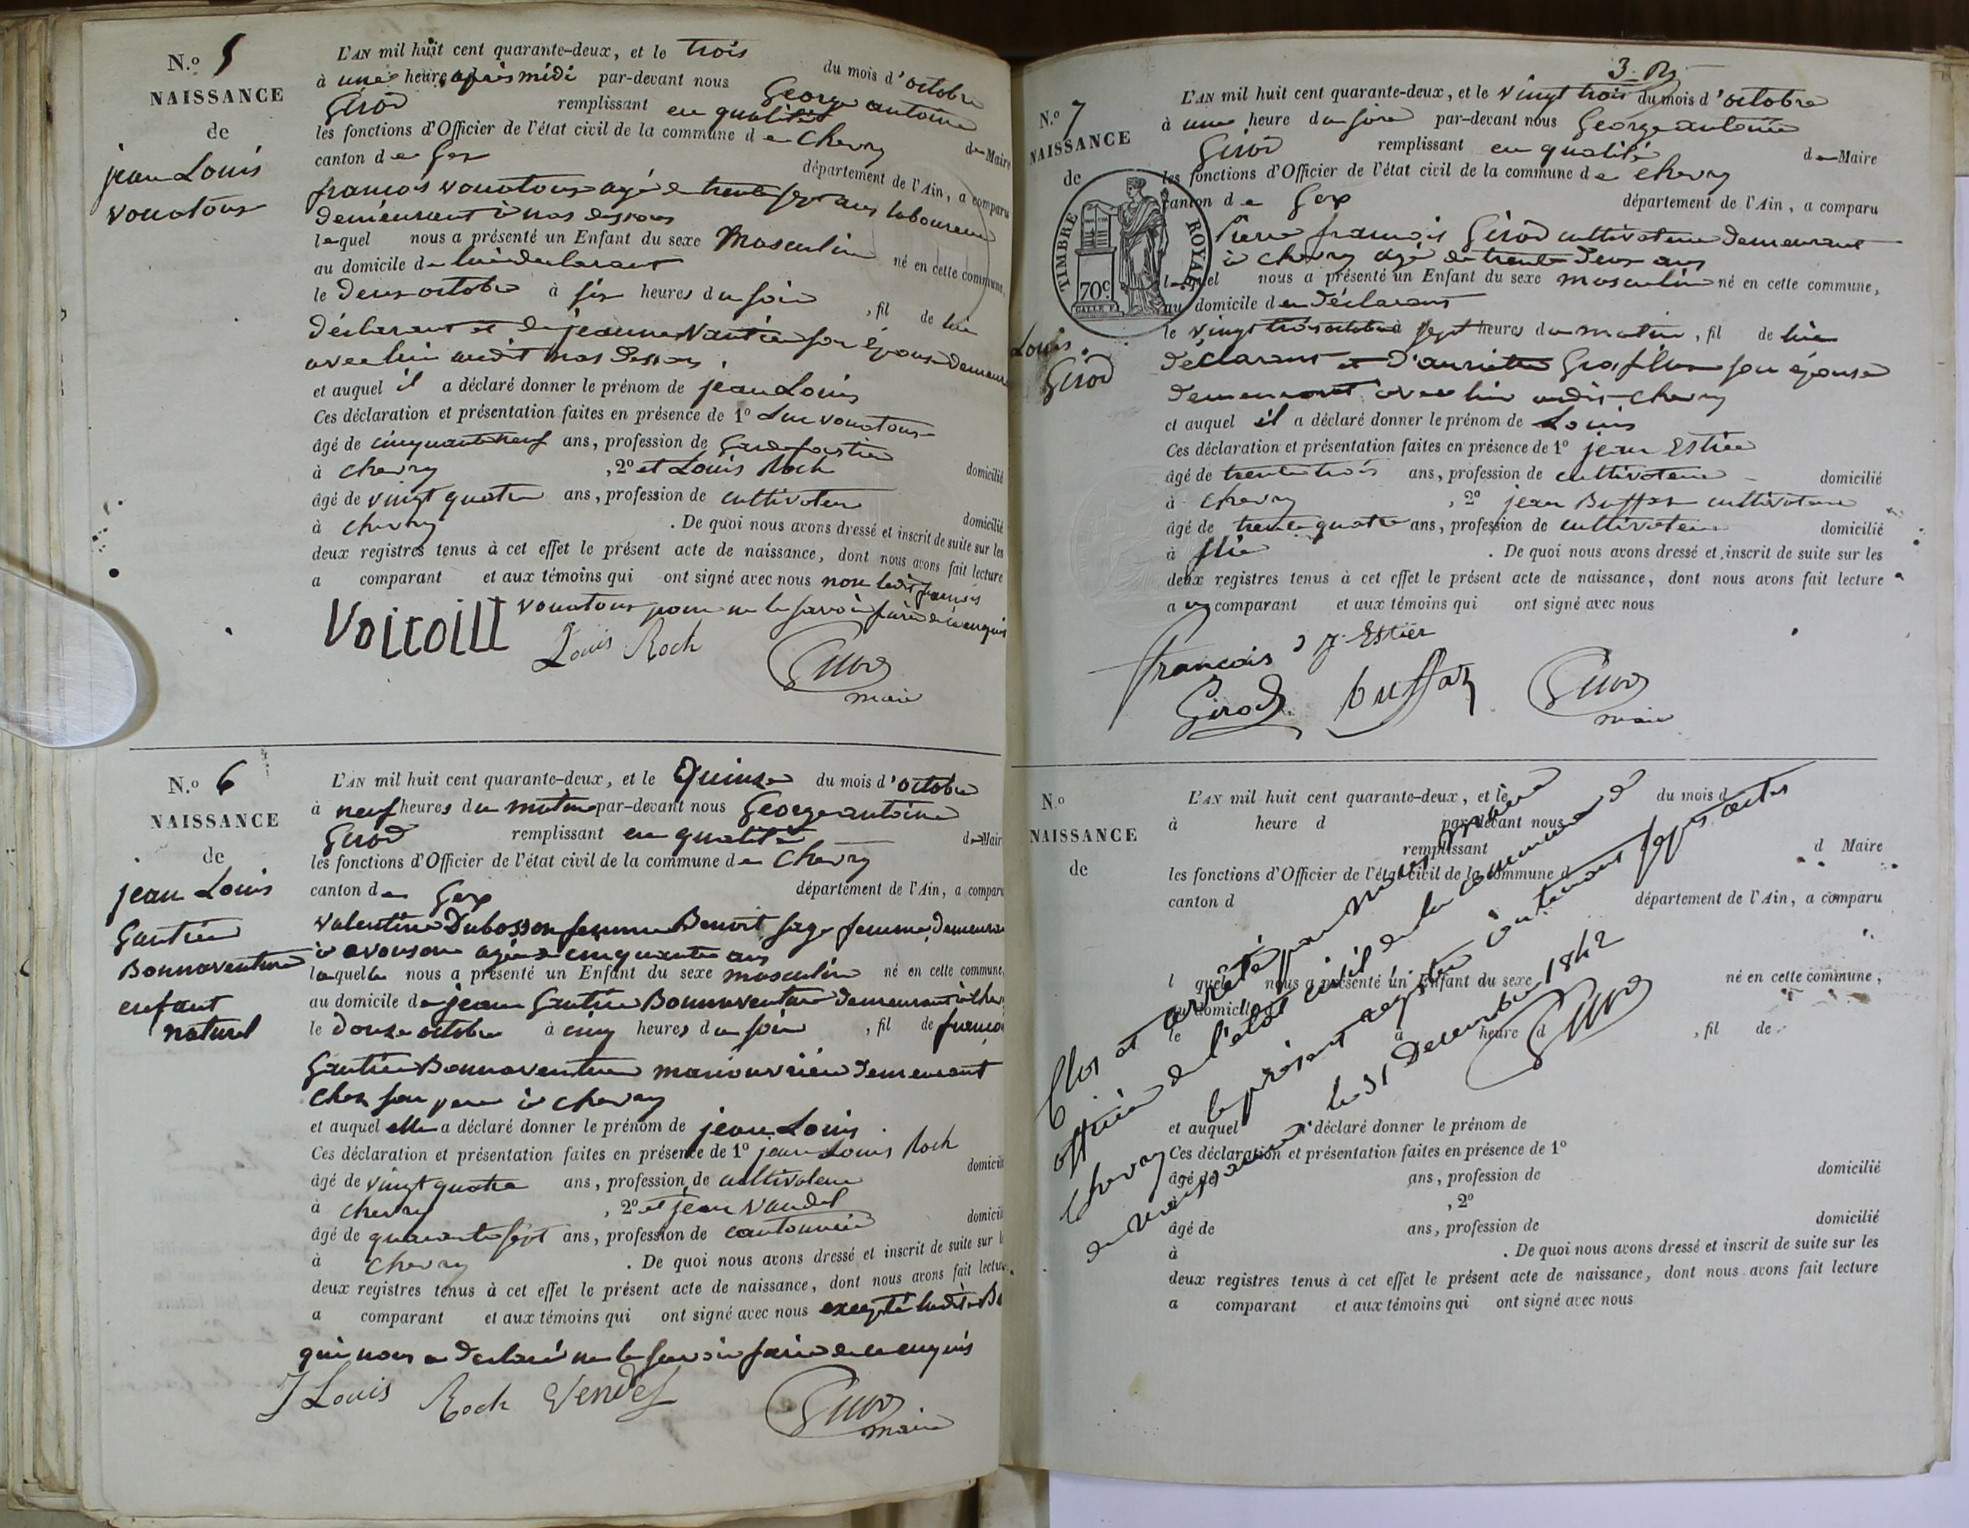 N.º 5
NAISSANCE
de
jean Louis
vouatoux
L'AN mil huit cent quarante-deux, et le trois du mois d'octobre
à une heure après midi par-devant nous George antoine
Girod remplissant en qualité de Maire
les fonctions d'Officier de l'état civil de la commune de Chevry
canton de Gex département de l'Ain, a comparu
francois vouatoux agé de trente sept ans laboureur
demeurant à nas dessous
lequel nous a présenté un Enfant du sexe Masculin né en cette commune,
au domicile de lui déclarant
le deux octobre à six heures du soir, fil de lui
déclarant et de jeanne son épouse demeurant
avec lui audit nas dessous
et auquel il a déclaré donner le prénom de jean Louis
Ces déclaration et présentation faites en présence de 1º Luc vouatoux
âgé de cinquante neuf ans, profession de Garde forestier
à chevry, 2º et Louis Roch domicilié
âgé de vingt quatre ans, profession de cultivateur
à chevry domicilié. De quoi nous avons dressé et inscrit de suite sur les
deux registres tenus à cet effet le présent acte de naissance, dont nous avons fait lecture
a comparant et aux témoins qui ont signé avec nous non ledit francois
vouatoux pour ne le savoir faire de ce enquis
Louis Roch
Girod
maire
N.º 6
NAISSANCE
de
jean Louis
Gautier
Bonnaventure
enfant
naturel
L'AN mil huit cent quarante-deux, et le Quinze du mois d'octobre
à neuf heures du matin par-devant nous George antoine
Girod remplissant en qualité de Maire
les fonctions d'Officier de l'état civil de la commune de Chevry
canton de Gex département de l'Ain, a comparu
valentine Dubosson femme Benoit sage femme, demeurant
à avouson agée de cinquante ans
laquelle nous a présenté un Enfant du sexe masculin né en cette commune,
au domicile de jean Gautier Bonnaventure demeurant à
le douze octobre à cinq heures du soir, fil de
Gautier Bonnaventure manouvrière demeurant
chez son pere à chevry
et auquel elle a déclaré donner le prénom de jean Louis.
Ces déclaration et présentation faites en présence de 1º jean Louis Roch
âgé de vingt quatre ans, profession de cultivateur domicilié
à chevry, 2º et jean Vandel
âgé de quarante sept ans, profession de cantonnier domicilié
à chevry. De quoi nous avons dressé et inscrit de suite sur les
deux registres tenus à cet effet le présent acte de naissance, dont nous avons fait lecture
a comparant et aux témoins qui ont signé avec nous excepté ladite
qui nous a déclaré ne le savoir faire de ce enquis
J Louis Roch Vendel
Girod
maire
N.º 7
NAISSANCE
de
TIMBRE ROYAL
70c
Louis
Girod
L'AN mil huit cent quarante-deux, et le vingt trois du mois d'octobre
à une heure du soir par-devant nous George antoine
Girod remplissant en qualité de Maire
les fonctions d'Officier de l'état civil de la commune de chevry
canton de Gex département de l'Ain, a comparu
Pierre francois Girod cultivateur demeurant
à chevry agé de trente deux ans
lequel nous a présenté un Enfant du sexe masculin né en cette commune,
au domicile du déclarant
le vingt trois octobre à sept heures du matin, fil de lui
déclarant et d'anriette son épouse
demeurant avec lui audit chevry
et auquel il a déclaré donner le prénom de Louis
Ces déclaration et présentation faites en présence de 1º jean Estier
âgé de trente trois ans, profession de cultivateur domicilié
à chevry, 2º jean Buffat cultivateur
âgé de trente quatre ans, profession de cultivateur domicilié
à. De quoi nous avons dressé et inscrit de suite sur les
deux registres tenus à cet effet le présent acte de naissance, dont nous avons fait lecture
a u comparant et aux témoins qui ont signé avec nous
francois J. Estier
Girod buffat Girod
maire
N.º
NAISSANCE
de
L'AN mil huit cent quarante-deux, et le du mois d
à heure d par-devant nous
remplissant d Maire
les fonctions d'Officier de l'état civil de la commune d
canton d département de l'Ain, a comparu
l quel nous a présenté un Enfant du sexe né en cette commune,
au domicile d
le à heure d, fil de
et auquel a déclaré donner le prénom de
Ces déclaration et présentation faites en présence de 1º
âgé de ans, profession de domicilié
à, 2º
âgé de ans, profession de domicilié
à. De quoi nous avons dressé et inscrit de suite sur les
deux registres tenus à cet effet le présent acte de naissance, dont nous avons fait lecture
a comparant et aux témoins qui ont signé avec nous
Clos et arrêté par nous maire
officier de l'état civil de la commune de
Chevry le présent registre contenant sept actes
de naissance le 31 Decembre 1842
Girod